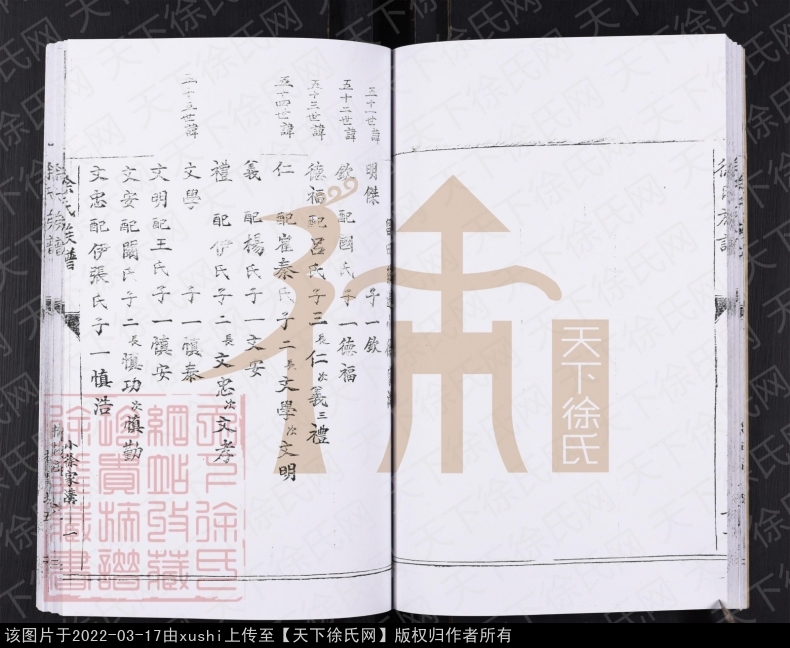 五十一世諱
明傑 子一欽
五十二世諱
欽 配國氏子一德福
五十三世諱
德福配呂氏子三長仁次義三禮
五十四世諱
仁 配崔秦氏子二長文學次文明
義 配楊氏子一文安
禮 配伊氏子二長文忠次文孝
五十五世諱
文學 子一慎泰
文明配王氏子一慎安
文安配關氏子二長慎功次慎勤
文忠配伊張氏子一慎浩
徐氏族譜
小徐家溝 一
徐氏族譜
天下徐氏
天下徐氏网
该图片于2022-03-17由xushi上传至【天下徐氏网】版权归作者所有